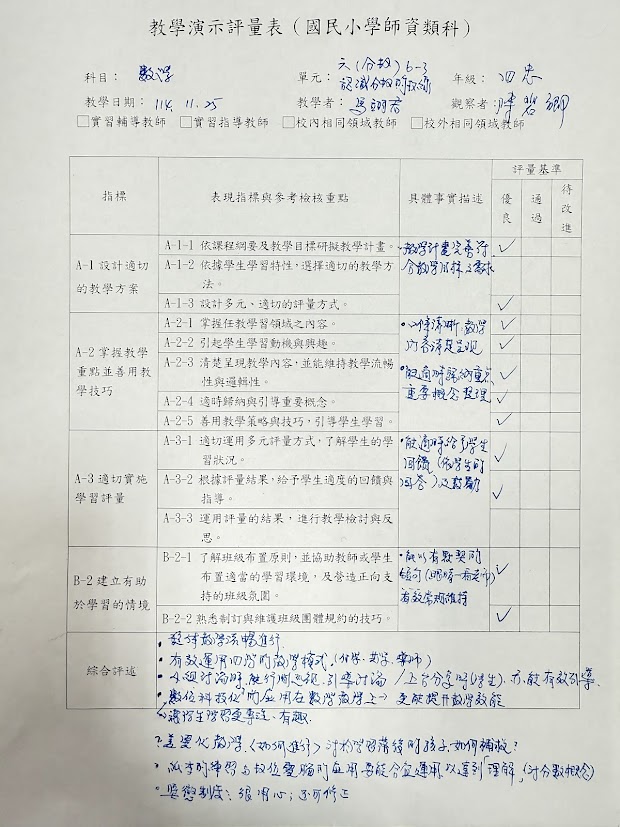 教學演示評量表（國民小學師資類科）
科目： 數學
單元： 六(分數) 6-3
年級： 四忠
教學日期： 114. 11. 25
教學者：
觀察者：
□實習輔導教師 □實習指導教師 □校內相同領域教師 □校外相同領域教師
指標
表現指標與參考檢核重點
具體事實描述
評量基準
優良
通過
待改進
A-1 設計適切的教學方案
A-1-1 依課程綱要及教學目標研擬教學計畫。
A-1-2 依據學生學習特性，選擇適切的教學方
法。
A-1-3 設計多元、適切的評量方式。
•教學計畫完善符
合教學目標及
A-2 掌握教學
重點並善用教
學技巧
A-2-1 掌握任教學習領域之內容。
A-2-2 引起學生學習動機與興趣。
A-2-3 清楚呈現教學內容，並能維持教學流暢
性與邏輯性。
A-2-4 適時歸納與引導重要概念。
A-2-5 善用教學策略與技巧，引導學生學習。
清晰 教學
內容清楚呈現
•能適時歸納重點
重要概念整理
A-3 適切實施
學習評量
A-3-1 適切運用多元評量方式，了解學生的學
習狀況。
A-3-2 根據評量結果，給予學生適度的回饋與
指導。
A-3-3 運用評量的結果，進行教學檢討與反
思。
•能適時給予學生
回饋（依學生的
回答）及鼓勵
B-2 建立有助
於學習的情境
B-2-1 了解班級布置原則，並協助教師或學生
布置適當的學習環境，及營造正向支
持的班級氛圍。
B-2-2 熟悉制訂與維護班級團體規約的技巧。
•能以有默契的
有效常規維持
綜合評述
•整体教學流暢進行.
•有效運用四學的教學模式.
•小組討論時.能行間巡視.引導討論 /上台分享時(學生).亦能有效引導.
•數位科技化的應用在數學教學上→ 更能提升教學效能
讓學生學習更專注、有趣.
?差異化教學.〈如何進行〉對於學習落後的孩子.如何補救?
•紙本的練習與數位電腦的應用要能合宜運用.以達到「理解」(對分數概念)
•獎懲制度：很用心；